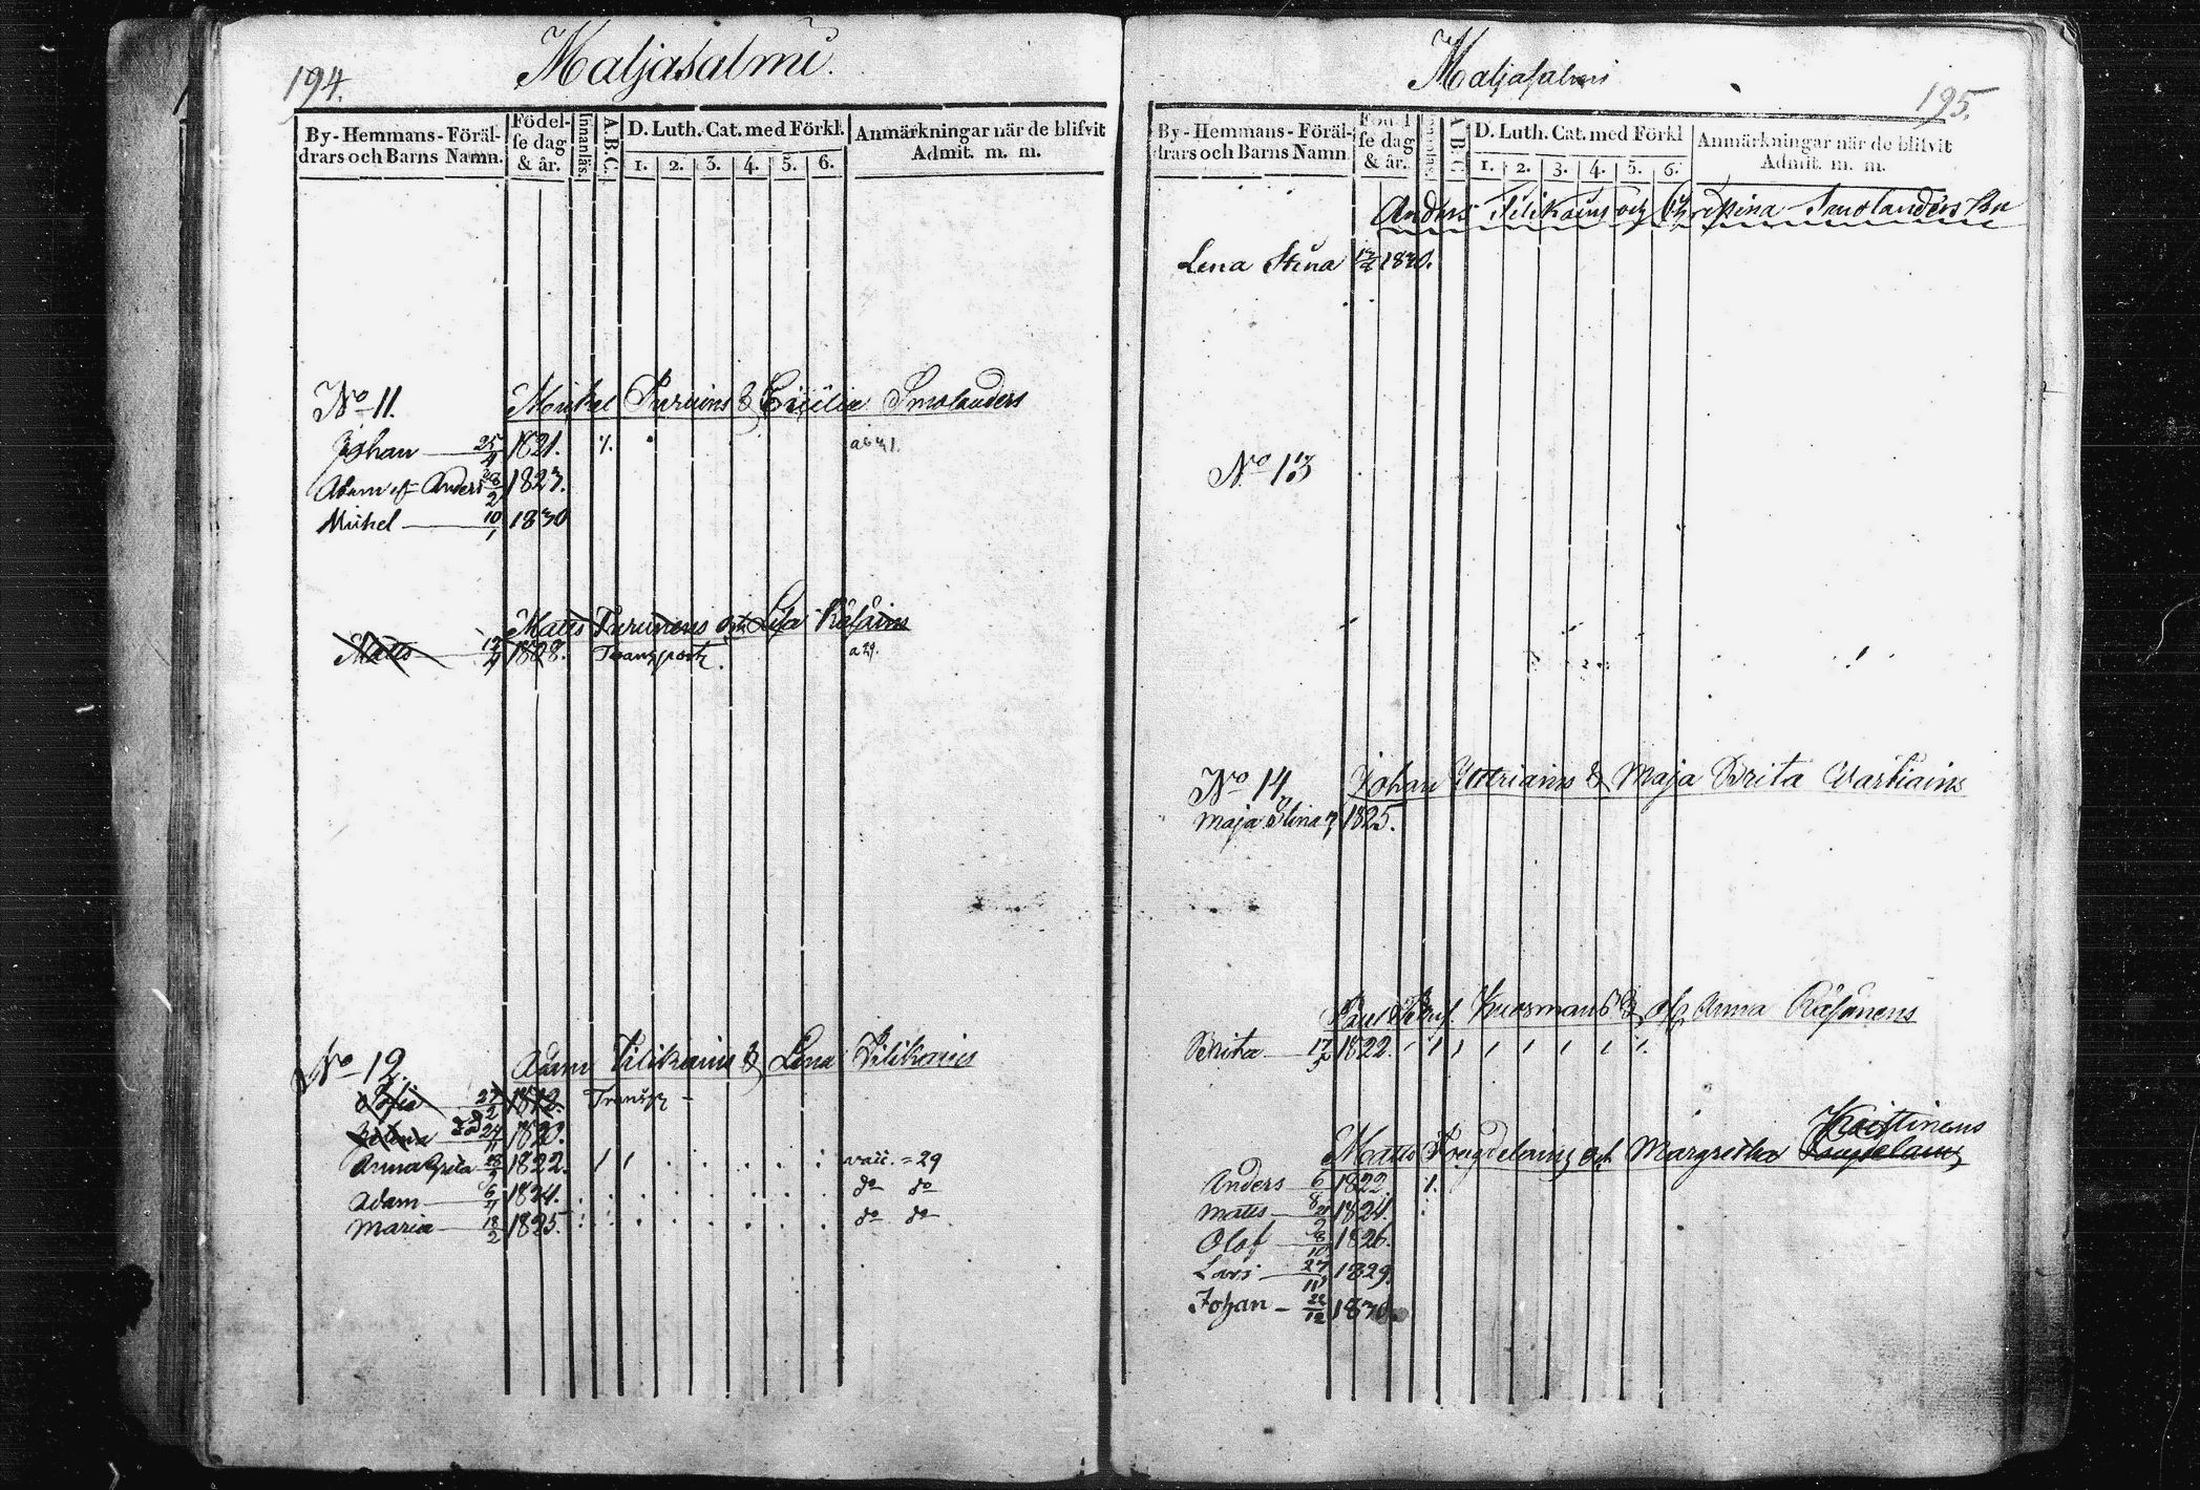 194.
Maljasalmi.
By-Hemmans-Föräl-
drars och Barns Namn.
Födel-
se dag
& år.
Innanläs.
A.B.C.
D. Luth. Cat. med Förkl.
1. 2. 3. 4. 5. 6.
Anmärkningar när de blifvit
Admit. m. m.
No 11. Michel Turuins & Cicilia Smolanders
Johan 25/4 1821.
Adam Anders 1827.
Michel 10/1 1830
Matts Turunens och Lisa Räsäins
Matts 1828. Transport. a 29.
No 12. Adam Tilikains & Lena Tilikains
Sofia 27/2 1812. Transp.
Helena 1820.
Anna Greta 1822. vacc. = 29
Adam 6/4 1824. do do
Maria 18/2 1825. do do
Maljasalmi
195.
By-Hemmans-Föräl-
drars och Barns Namn
Födel
se dag
& år.
A.B.C.
D. Luth. Cat. med Förkl
1. 2. 3. 4. 5. 6.
Anmärkningar när de blifvit
Admit. m. m.
Anders Tilikains och Christina Smolanders Bn
Lena Stina 1830.
No 13
No 14. Johan Uotriains & Maja Brita Vartiains
Maja Stina 1825.
Paul Kuosmans & Anna Räsänens
Brita 17/5 1822.
Kristinens
Matts Pougdelains och Margretha Pougdelains
Anders 6/8 1822.
Matts 1824.
Olof 1826.
Lars 27/11 1829.
Johan 22/12 1830.